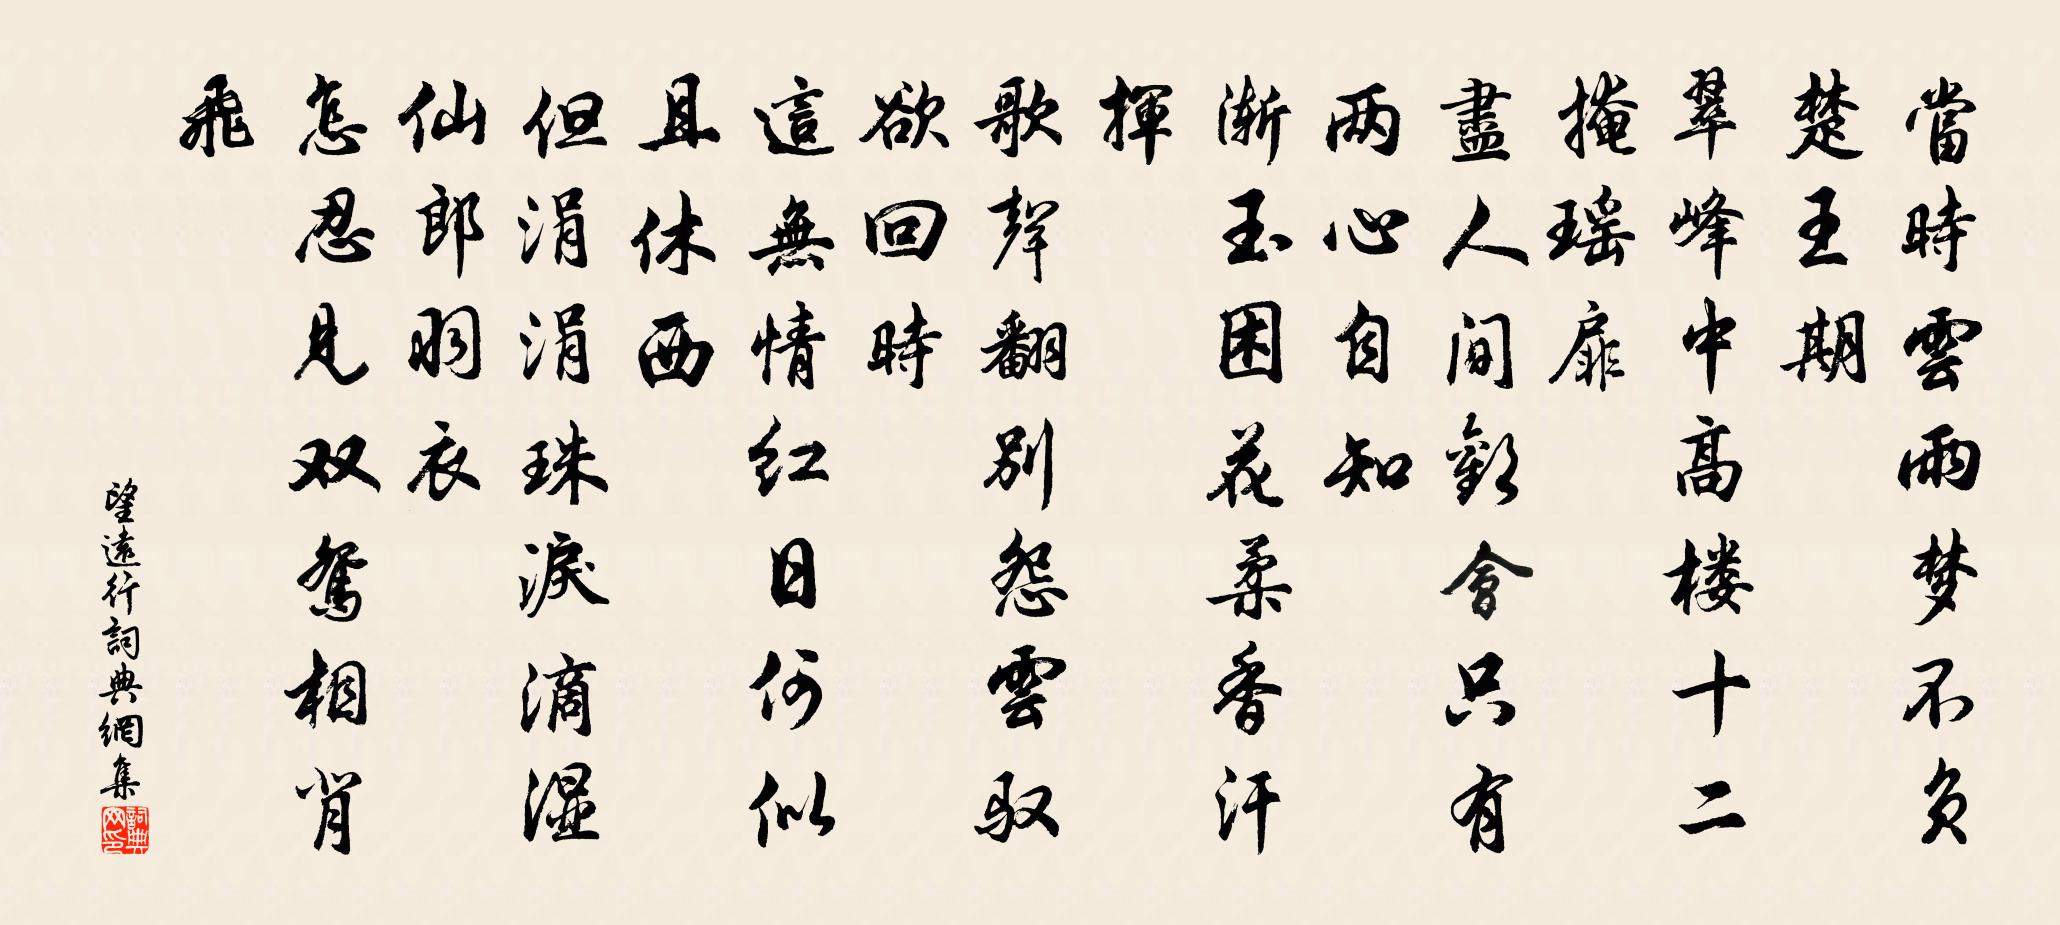 當時雲雨梦不負
楚王期
翠峰中高楼十二
掩瑶扉
盡人间歡會只有
两心自知
渐玉困花柔香汗
揮
歌聲翻别怨雲驭
欲回時
這無情红日何似
且休西
但涓涓珠淚滴濕
仙郎羽衣
怎忍見双鴛相背
飛
望遠行詞典網集
詞典网印